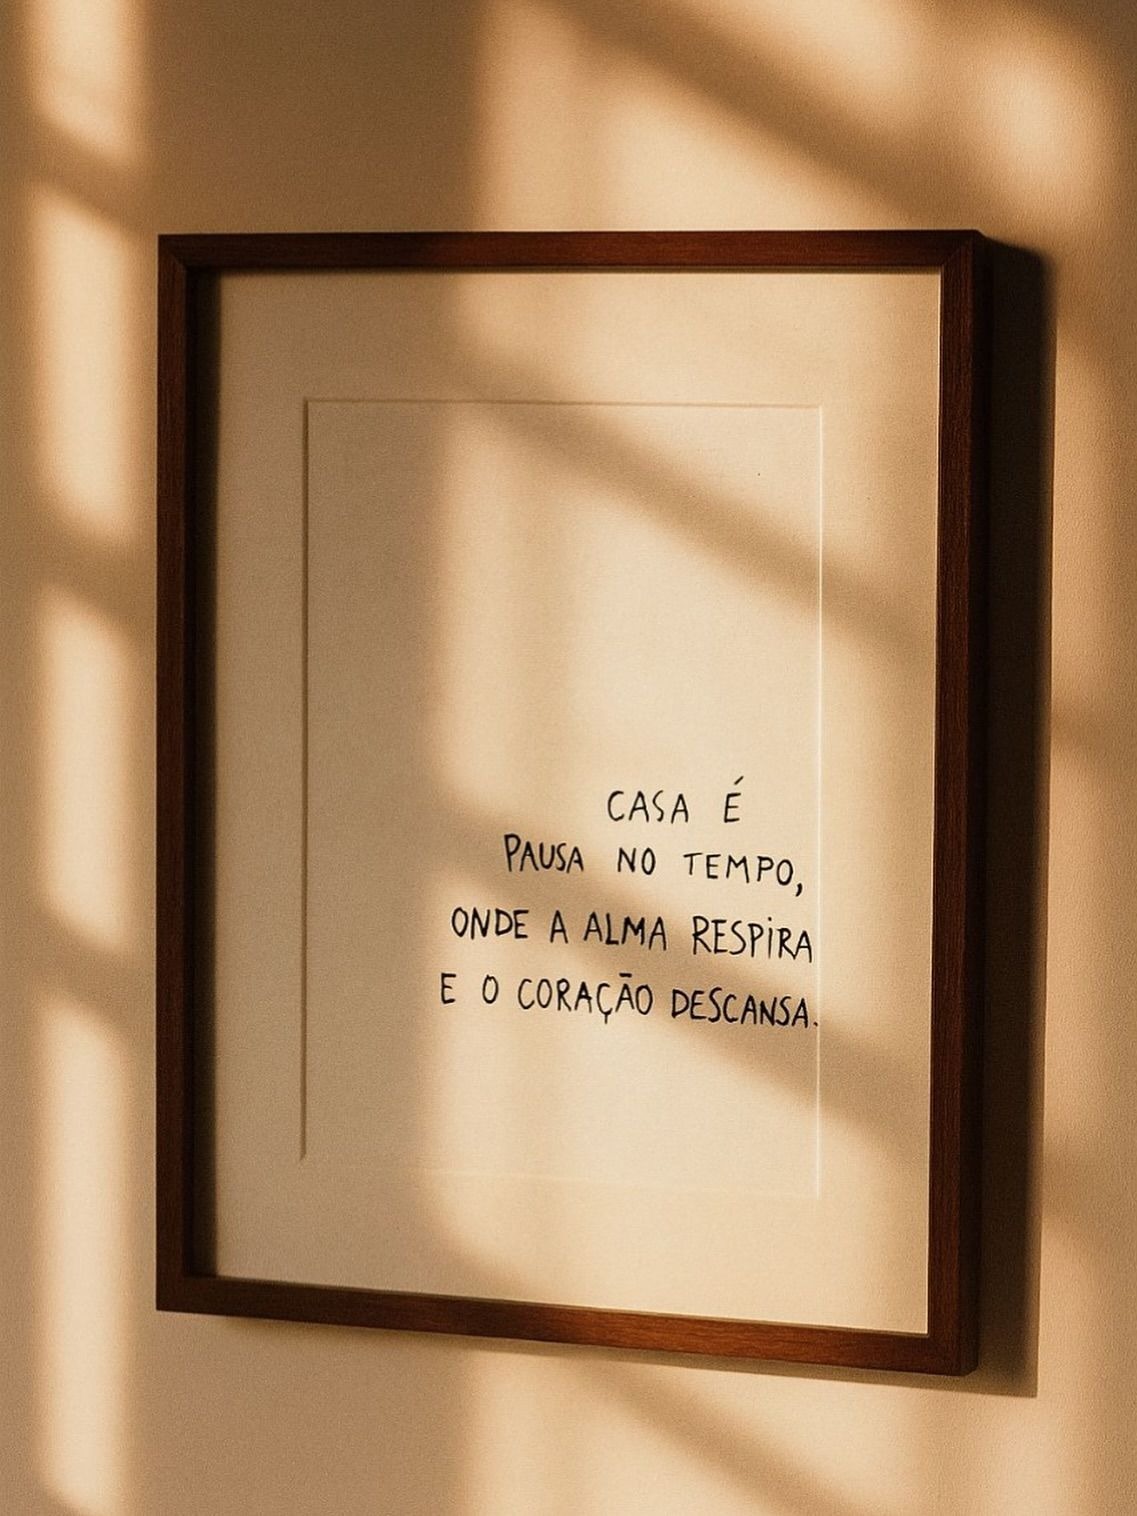 CASA É
PAUSA NO TEMPO,
ONDE A ALMA RESPIRA
E O CORAÇÃO DESCANSA.